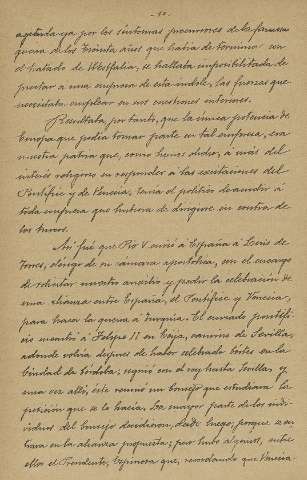 agitada ya por los síntomas precursores de la famosa
guerra de los treinta años que había de terminar con
el tratado de Westfalia, se hallaba imposibilitada de
prestar a una empresa de esta índole, las fuerzas que
necesitaba emplear en sus cuestiones interiores.
Resultaba, por tanto, que la única potencia de
Europa que podía tomar parte en tal empresa, era
nuestra patria que, como hemos dicho, a más del
interés religioso en responder a las excitaciones del
Pontífice y de Venecia, tenía el político de acudir a
toda empresa que hubiera de dirigirse en contra de
los turcos.
Así fué que Pio V envió a España a Luis de
Torres, clérigo de su cámara apostólica, con el encargo
de solicitar nuestro auxilio y pactar la celebración de
una alianza entre España, el Pontífice y Venecia,
para hacer la guerra a Turquía. El enviado pontifi-
cio encontró a Felipe II en Ecija, camino de Sevilla,
adonde volvía despues de haber celebrado Cortes en la
Ciudad de Córdoba; siguió con el rey hasta Sevilla, y
una vez allí, éste reunió un Consejo que estudiara la
petición que se le hacía. La mayor parte de los indi-
viduos del Consejo decidieron, desde luego, porque se en-
trara en la alianza propuesta; pero hubo algunos, entre
ellos el Presidente, Espinosa que, recordando que Venecia